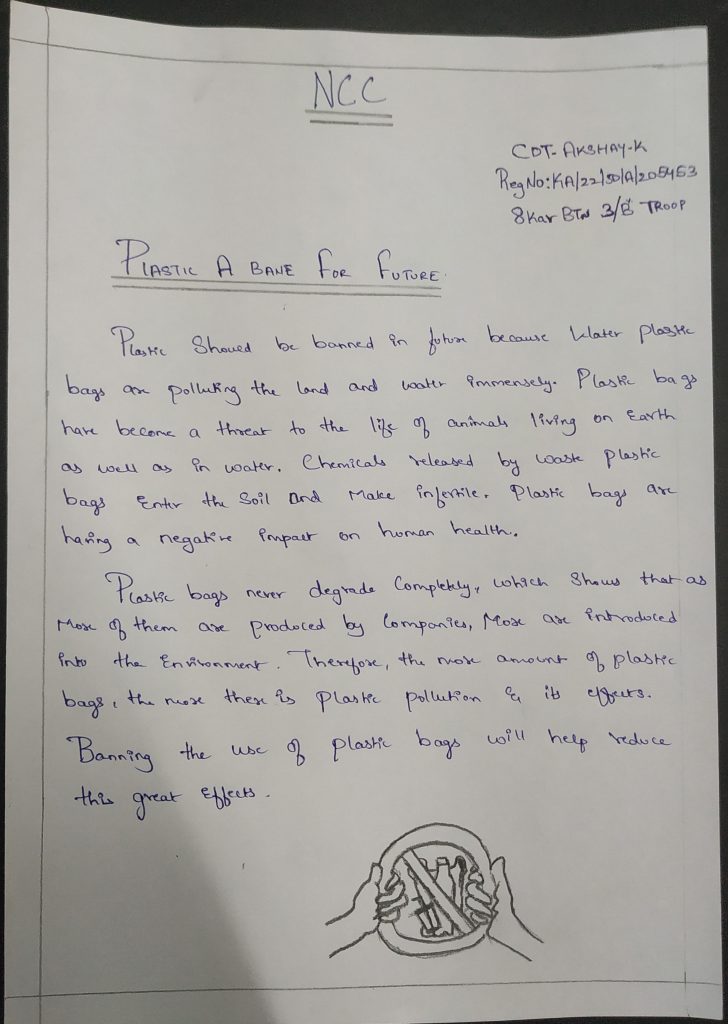 NCC
CDT- AKSHAY-K
Reg No: KA/22/SD/A/205453
8 Kar BTN 3/8 TROOP
PLASTIC A BANE FOR FUTURE.
Plastic Shoued be banned in future because Water plastic
bags are polluting the land and water immensely. Plastic bags
have become a threat to the life of animals living on Earth
as well as in water. Chemicals released by waste plastic
bags Enter the Soil and Make infertile. Plastic bags are
having a negative impact on human health.
Plastic bags never degrade Completely, which Shows that as
More of them are produced by Companies, More are introduced
into the Environment. Therefore, the more amount of plastic
bags, the more there is Plastic pollution & its effects.
Banning the use of plastic bags will help reduce
this great effects.